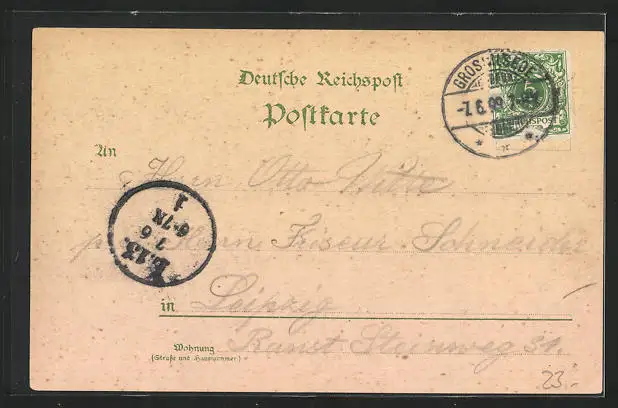 Deutsche Reichspost
Postkarte
-7.6.99
REICHSPOST
An
Herrn Otto Witte
Herrn Friseur Schneider
in Leipzig
Wohnung
(Straße und Hausnummer)
Ranst Steinweg
23.-
L.13.
7 6
6-7N